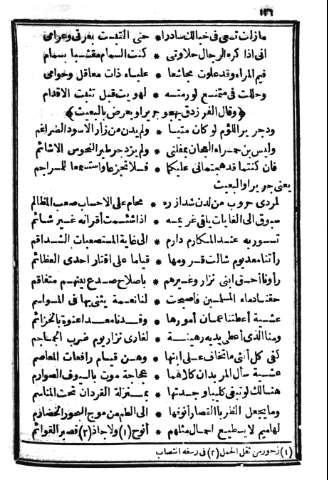 ١٣٦
مازلت تسعى في خبالك سادرا * حتى التبست بعرتي وعرامي
انى اذا كره الرجال حلاوتي * كنت السمام مقشبا بسمام
فيم المراء وقد علوت مجاشعا * علياء ذات معاقل وحوامي
وحللت في متمنع لو رمته * لهويت قبل تثبت الاقدام
وقال الفرزدق يهجو جريرا ويعرض بالبعيث
ود جرير اللؤم لو كان عانيا * ولم يدن من زأر الاسود الضراغم
وليس ابن حمراء العجان بمفلتي * ولم يزدجر طير النحوس الاشائم
فان كنتما قد هجتماني عليكما * فلا تجزعا واستسمعا للمراجم
يعني جريرا والبعيث
لمردى حروب من لدن شد ازره * محام على الاحساب صعب المظالم
سبوق الى الغايات يلفى عزيمه * اذا سئمت أقرانه غير سائم
تسور به عند المكارم دارم * الى غاية المستصعبات الشداقم
رأتنا معد يوم شالت قرومها * قياما على اقتار احدى العظائم
رأونا أحق ابنى نزار وغيرهم * باصلاح صدع بينهم متفاقم
حقنا دماء المسلمين فاصبحت * لنا نعمة يثنى بها في المواسم
عشية أعطتنا عمان أمورها * وقدنا معدا عنوة بالخزائم
ومنا الذي أعطى يديه رهينة * لغارى نزار يوم ضرب الجماجم
كفى كل أنثى ما تخاف على ابنها * وهن قيام رافعات المعاصم
عشية سال المربدان كلاهما * عجاجة موت بالسيوف الصوارم
هنالك لو تبغي كليبا وجدتها * بمنزلة القردان تحت المناسم
وما يجعل الظربا القصار أنوفها * الى الطم من موج البحور الخضارم
لهاميم لا يسطيع احمال مثلهم * أنوح (١) ولا جاذ (٢) قصير القوائم
(١) زحور من ثقل الحمل (٢) في رسغه انتصاب